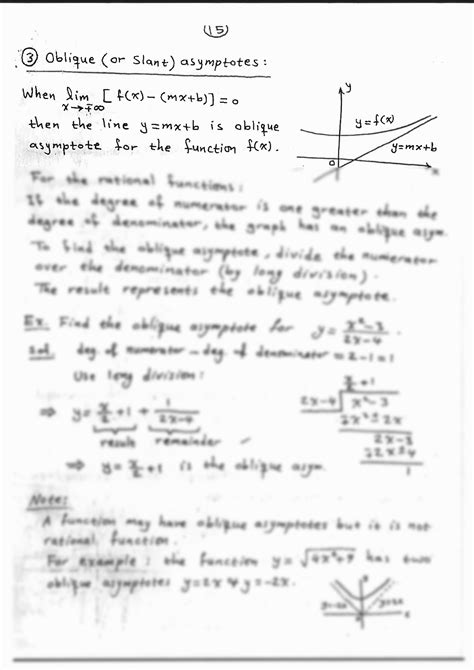 (15)
③ Oblique (or Slant) asymptotes:
When lim [f(x) - (mx+b)] = 0
x→∓∞
then the line y=mx+b is oblique
asymptote for the function f(x).
y
y=f(x)
y=mx+b
0
x
For the rational functions:
If the degree of numerator is one greater than the
degree of denominator, the graph has an oblique asym.
To find the oblique asymptote, divide the numerator
over the denominator (by long division).
The result represents the oblique asymptote.
Ex. Find the oblique asymptote for y = (x²-3)/(2x-4).
Sol. deg. of numerator - deg. of denominator = 2-1=1
Use long division:
x/2 + 1
2x-4 x²-3
⇒ y = x/2 + 1 + 1/(2x-4)
result remainder
2x-3
1
⇒ y = x/2 + 1 is the oblique asym.
Note:
A function may have oblique asymptotes but it is not
rational function.
For example: the function y = has two
oblique asymptotes y=2x y=-2x.
y=-2x y=2x